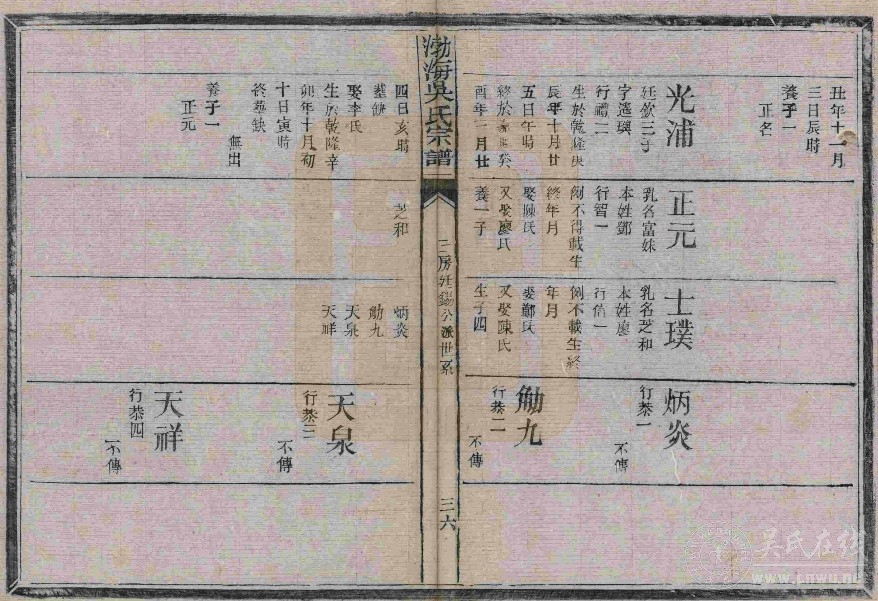 丑年十一月
三日辰時
養子一
正名
光浦
廷欽三子
字遙璵
行禮二
生於乾隆庚
辰年十月廿
五日午時
終於嘉慶癸
酉年一月廿
正元
乳名富妹
本姓鄧
行智一
例不得載生
終年月
娶陳氏
又娶廖氏
養一子
士璞
乳名芝和
本姓廖
行信一
例不載生終
年月
娶鄭氏
又娶陳氏
生子四
炳炎
行恭一
不傳
勛九
行恭二
不傳
渤海吳氏宗譜
三房廷錫公派世系
三六
四日亥時
墓缺
娶李氏
生於乾隆辛
卯年十月初
十日寅時
終葬缺
無出
養子一
正元
芝和
炳炎
勛九
天泉
天祥
天泉
行恭三
不傳
天祥
行恭四
不傳
吴氏在线
www.cnwu.net